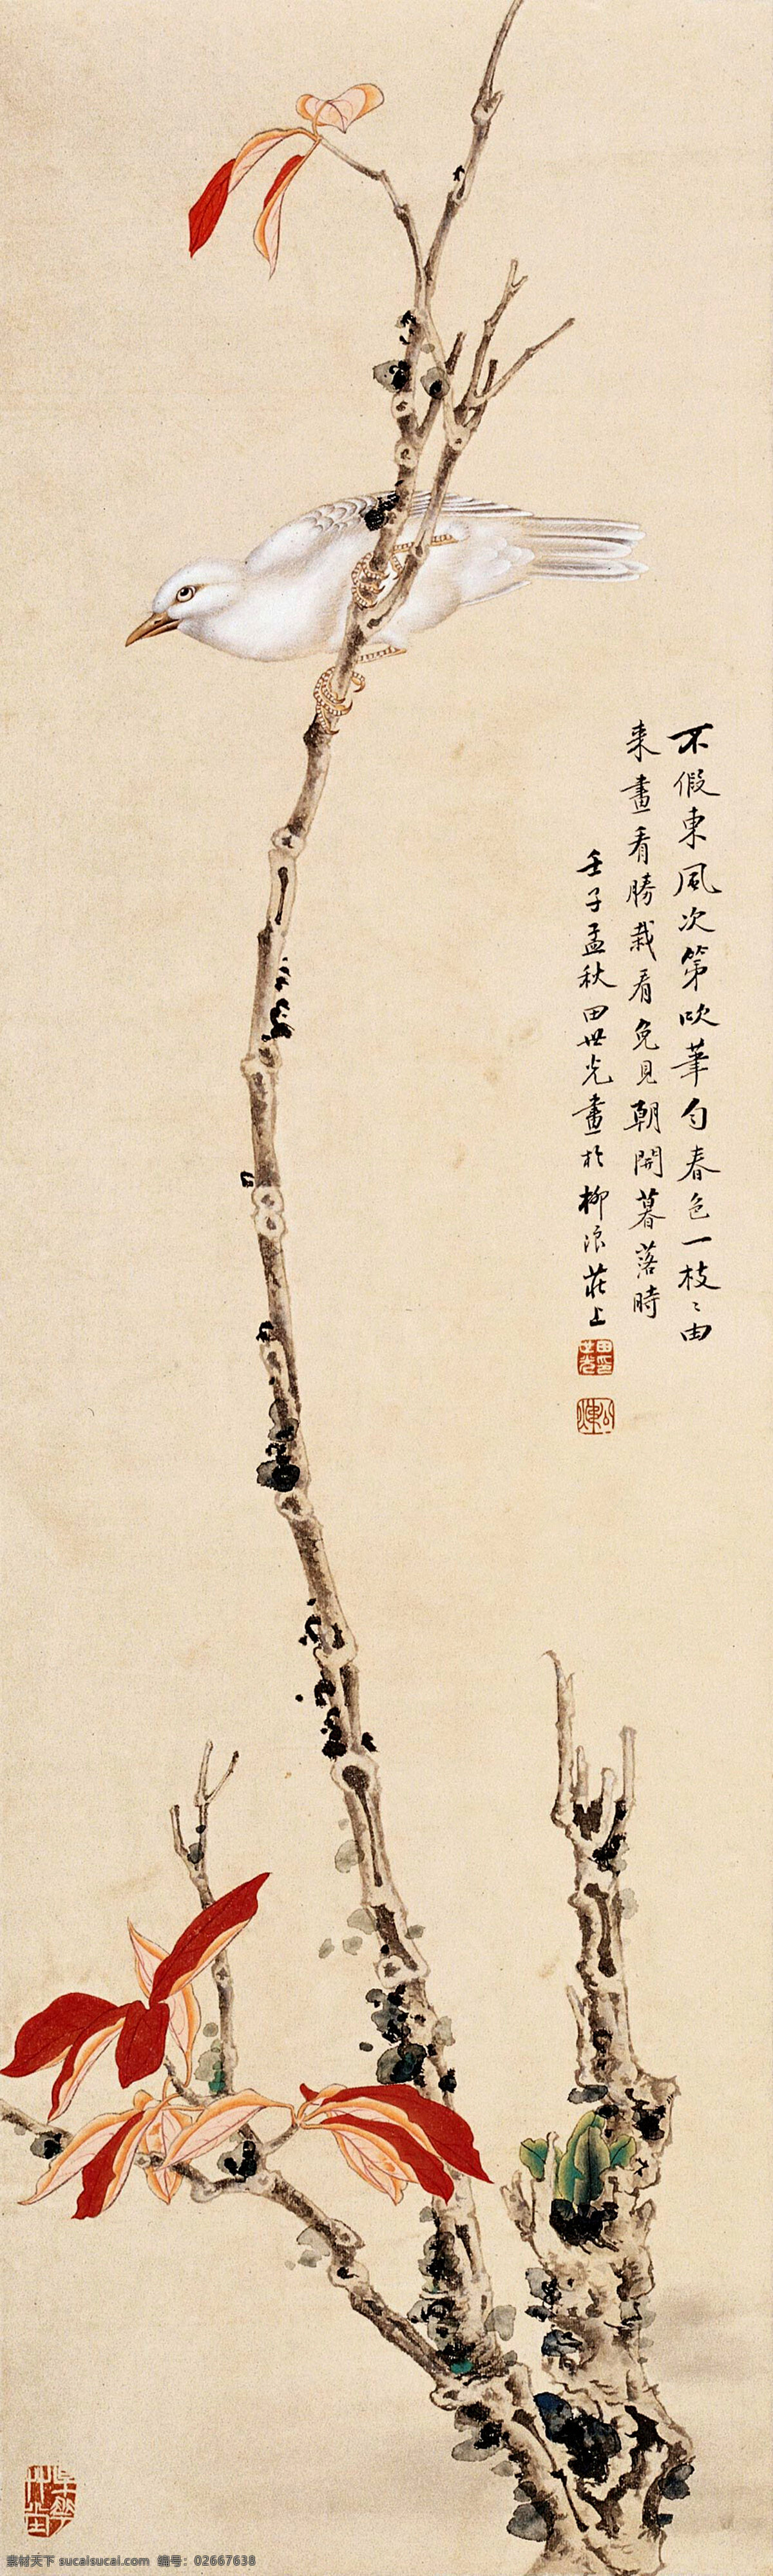 不假東風次第吹筆勻春色一枝〻由
来畫看勝栽看免見朝開暮落時
壬子孟秋田世光畫於柳浪莊上
田世光印
公煒
素材天下 sucaisucai.com 编号：02667638